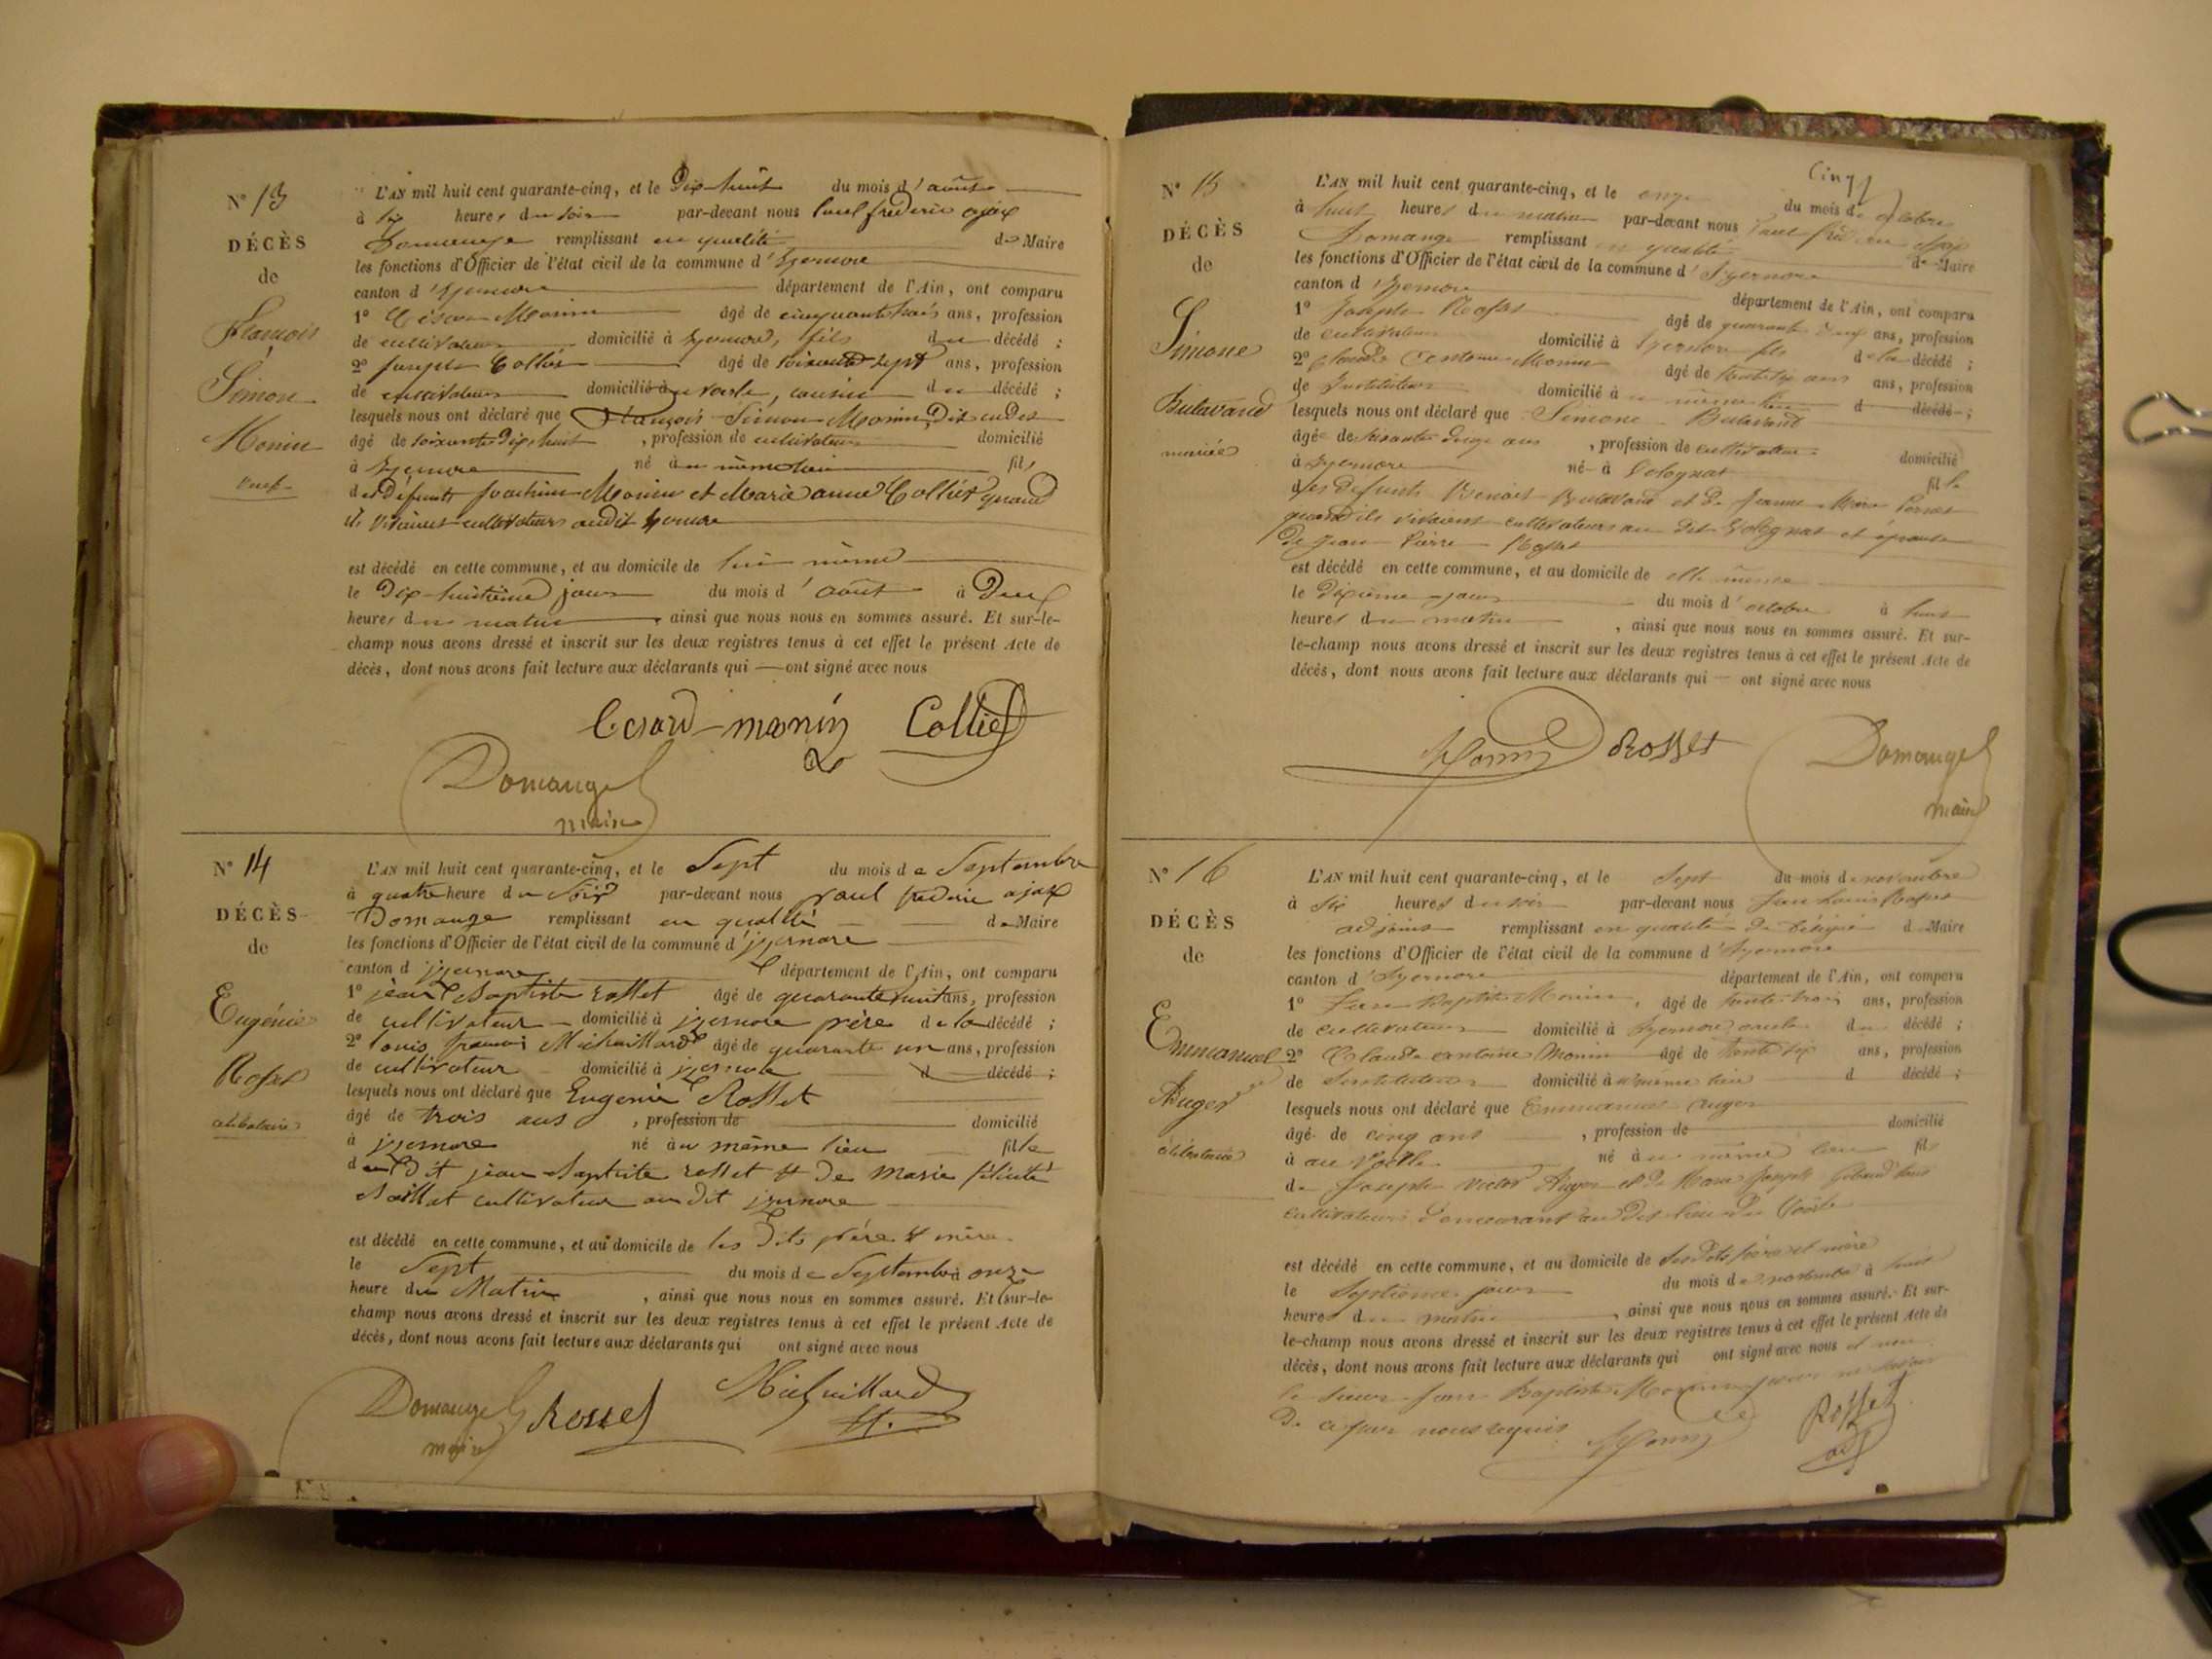 N° 13
DÉCÈS
de
François
Simon
Monin
veuf
L'AN mil huit cent quarante-cinq, et le Dix-huit du mois d'août
à six heures du soir par-devant nous Paul frederic ajax
Domange remplissant en qualité de Maire
les fonctions d'Officier de l'état civil de la commune d'Izernore
canton d'Izernore département de l'Ain, ont comparu
1° Césard Monin âgé de cinquante trois ans, profession
de cultivateur domicilié à Izernore, fils du décédé ;
2° Joseph Colliet âgé de soixante sept ans, profession
de cultivateur domicilié à , cousin du décédé ;
lesquels nous ont déclaré que François Simon Monin Dit
âgé de soixante Dix huit , profession de cultivateur domicilié
à Izernore né au même lieu fils
des Défunts Joachim Monin et Marie anne Colliet quand
ils vivaient cultivateurs audit Izernore
est décédé en cette commune, et au domicile de lui même
le Dix-huitième jour du mois d'août à Deux
heures du matin , ainsi que nous nous en sommes assuré. Et sur-le-
champ nous avons dressé et inscrit sur les deux registres tenus à cet effet le présent Acte de
décès, dont nous avons fait lecture aux déclarants qui ont signé avec nous
Cesard monin Colliet
Domange
maire
N° 14
DÉCÈS
de
Eugénie
Rosset
célibataire
L'AN mil huit cent quarante-cinq, et le Sept du mois de Septembre
à quatre heure du Soir par-devant nous paul frederic ajax
Domange remplissant en qualité de Maire
les fonctions d'Officier de l'état civil de la commune d'izernore
canton d'izernore département de l'Ain, ont comparu
1° jean Baptiste rosset âgé de quarante huit ans, profession
de cultivateur domicilié à izernore père de la décédé ;
2° louis françois Michuillard âgé de quarante un ans, profession
de cultivateur domicilié à izernore d décédé ;
lesquels nous ont déclaré que Eugénie Rosset
âgé de trois ans , profession de domicilié
à izernore né au même lieu fille
du Dit jean Baptiste rosset & De Marie félicité
Maillet cultivateur au dit izernore
est décédé en cette commune, et au domicile de les Dits père & mère
le Sept du mois de Septembre à onze
heure du Matin , ainsi que nous nous en sommes assuré. Et sur-le-
champ nous avons dressé et inscrit sur les deux registres tenus à cet effet le présent Acte de
décès, dont nous avons fait lecture aux déclarants qui ont signé avec nous
Domange Rosset Michuillard
maire
Cinq
N° 15
DÉCÈS
de
Simone
Butavand
mariée
L'AN mil huit cent quarante-cinq, et le onze du mois d'octobre
à huit heures du matin par-devant nous Paul frederic ajax
Domange remplissant en qualité de Maire
les fonctions d'Officier de l'état civil de la commune d'Izernore
canton d'Izernore département de l'Ain, ont comparu
1° Joseph Rosset âgé de quarante deux ans, profession
de cultivateur domicilié à Izernore fils de la décédé ;
2° Claude Antoine Monin âgé de trente six ans ans, profession
de Instituteur domicilié à même lieu d décédé ;
lesquels nous ont déclaré que Simone Butavand
âgée de soixante douze ans , profession de cultivateur domicilié
à Izernore né à Volognat fille
des défunts Benoit Butavand et De Jeanne Marie Pernet
quand ils vivaient cultivateurs au dit Volognat et épouse
De Jean Pierre Rosset
est décédé en cette commune, et au domicile de elle même
le Dixième jour du mois d'octobre à huit
heures du matin , ainsi que nous nous en sommes assuré. Et sur-
le-champ nous avons dressé et inscrit sur les deux registres tenus à cet effet le présent Acte de
décès, dont nous avons fait lecture aux déclarants qui ont signé avec nous
Monin Rosset Domange
maire
N° 16
DÉCÈS
de
Emmanuel
Auger
célibataire
L'AN mil huit cent quarante-cinq, et le Sept du mois de novembre
à six heures du soir par-devant nous Jean Louis Rosset
adjoint remplissant en qualité de Délégué d Maire
les fonctions d'Officier de l'état civil de la commune d'Izernore
canton d'Izernore département de l'Ain, ont comparu
1° Jean Baptiste Monin, âgé de trente trois ans, profession
de cultivateur domicilié à Izernore, oncle du décédé ;
2° Claude antoine Monin âgé de trente six ans, profession
de Instituteur domicilié à même lieu d décédé ;
lesquels nous ont déclaré que Emmanuel Auger
âgé de cinq ans , profession de domicilié
à au Voërle né au même lieu fils
de Joseph Victor Auger et de Marie Josephe tous
cultivateurs demeurant au Dit lieu du Voërle
est décédé en cette commune, et au domicile de ses Dits père et mère
le Septième jour du mois de novembre à huit
heures du matin , ainsi que nous nous en sommes assuré. Et sur-
le-champ nous avons dressé et inscrit sur les deux registres tenus à cet effet le présent Acte de
décès, dont nous avons fait lecture aux déclarants qui ont signé avec nous et non
le sieur Jean Baptiste Monin pour ne savoir
De ce par nous requis
Monin Rosset
adj